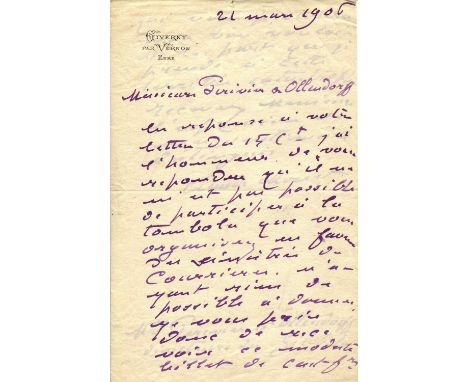 21 mars 1906
GIVERNY
PAR VERNON
EURE
Messieurs Périvier & Ollendorff
En reponse à votre
lettre du 19 Ct j'ai
l'honneur de vous
repondre qu'il ne
m'est pas possible
de participer à la
tombola que vous
organisez en faveur
des sinistrés de
Courrières. n'a-
yant rien de
possible à donner
je vous prie
donc de rece
voir ce modeste
billet de cent frs